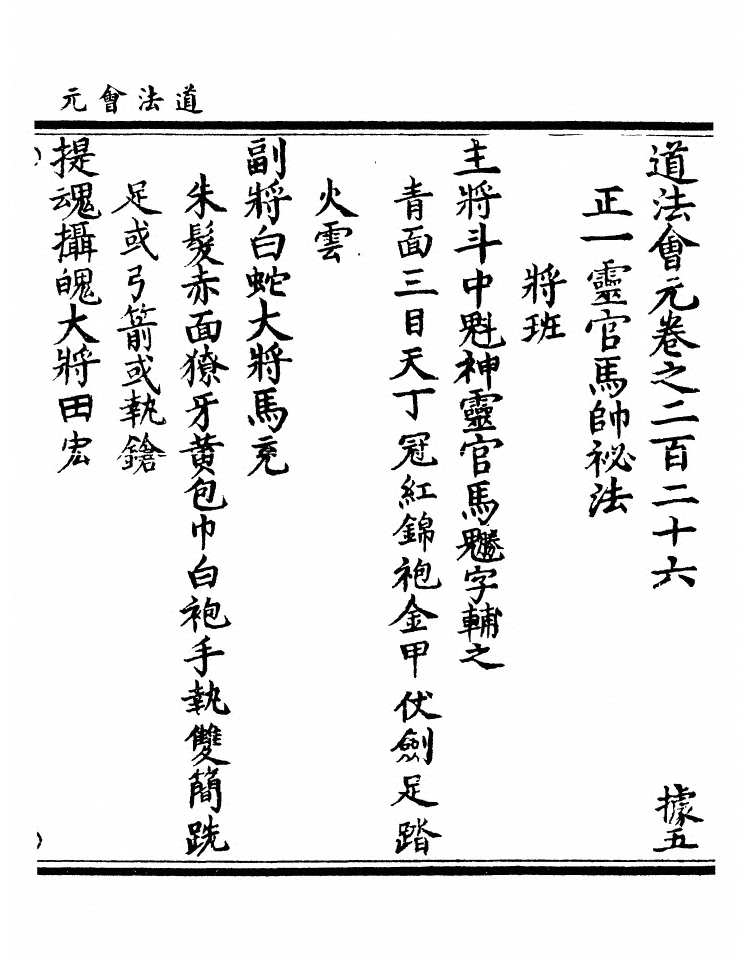 道法會元
道法會元卷之二百二十六 據五
正一靈官馬帥祕法
將班
主將斗中魁神靈官馬字輔之
青面三目天丁冠紅錦袍金甲仗劍足踏
火雲
副將白蛇大將馬充
朱髮赤面獠牙黃包巾白袍手執雙簡跣
足或弓箭或執鎗
提魂攝魄大將田宏